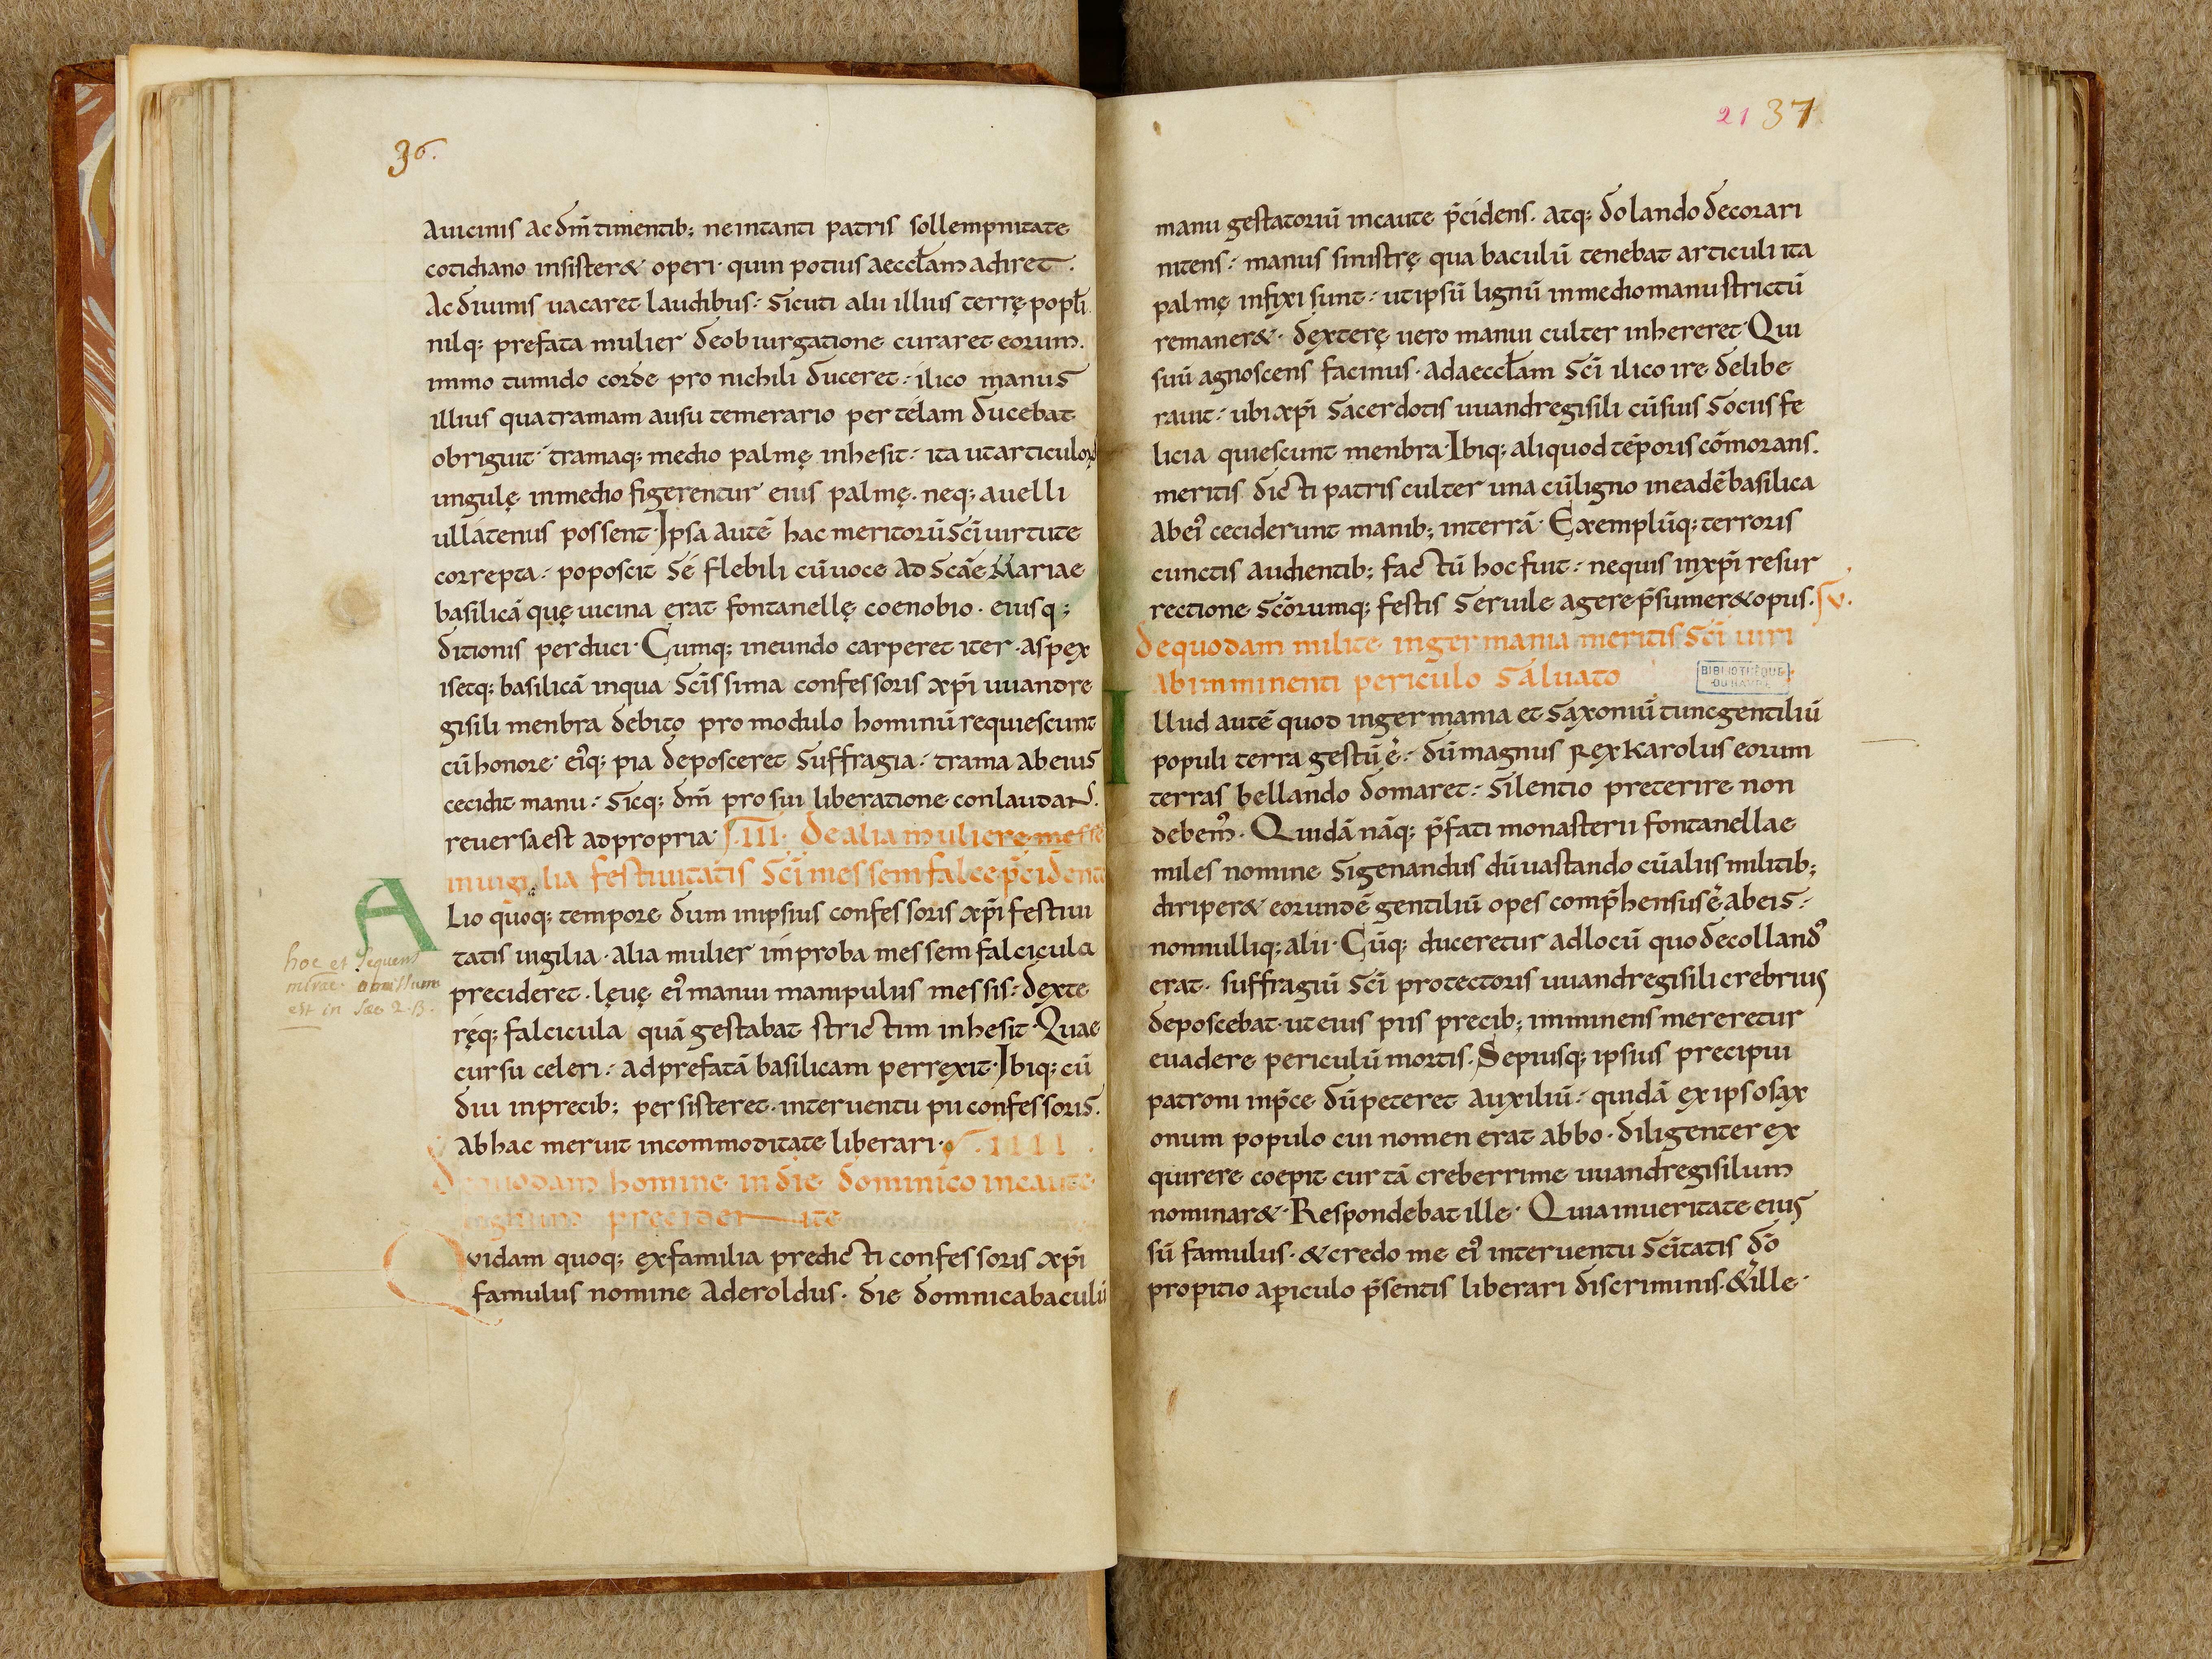 36.
auicinis ac dm̄ timentib; ne intanti patris sollempnitate
cotidiano insister& operi· quin potius aeccłam adiret·
Ac diuinis uacaret laudibus: Sicuti alii illius terrę popłi.
nilq; prefata mulier de obiurgatione curaret eorum.
immo tumido corde pro nichili duceret: ilico manus
illius qua tramam ausu temerario per télam ducebat
obriguit· tramaq; medio palmę inhesit: ita ut articulorꝫ
ungulę inmedio figerentur eius palmę. neq; auelli
ullátenus possent· Ipsa autē hac meritorū Scī uirtute
correpta: poposcit Sé flebili cū uoce ad Scāe Mariae
basilicā quę uicina erat fontanellę coenobio· eiusq;
ditionis perduci· Cumq; ineundo carperet iter· aspex
isetq; basilicā inqua Scīssima confessoris xp̄i uuandre
gisili menbra debito pro modulo hominū requiescunt
cū honore· ei᾽q; pia deposceret Suffragia: trama ab eius
cecidit manu: Sicq; dm̄ pro sui liberatione conlaudans.
reuersa est ad propria· ſ. III. De alia muliere
inuigilia festiuitatis Scī messem falce p̄cidente
A
Lio quoq; tempore dum inipsius confessoris xp̄i festiui
tatis uigilia· alia mulier improba messem falcicula
hoc et sequens
mirac. omissum
est in Sæc. 2. B.
precideret· lęuę ei᾽ manui manipulus messis: dexte
ręq; falcicula quā gestabat strictim inhesit· Quae
cursu celeri: ad prefatā basilicam perrexit· Ibiq; cū
diu inprecib; persisteret· interuentu pii confessoris.
ab hac meruit incommoditate liberari· ſ. IIII.
De quodam homine in die dominico incaute
lignum precidente
Quidam quoq; exfamilia predicti confessoris xp̄i
famulus nomine Aderoldus· die domnica baculū
21 37
manu gestatoriū incaute p̄cidens. atq; dolando decorari
nitens: manus sinistrę qua baculū tenebat articuli ita
palmę infixi sunt: ut ipsū lignū inmedio manu strictū
remaner&· dexterę uero manui culter inhereret· Qui
suū agnoscens facinus· ad aeccłam Scī ilico ire delibe
rauit: ubi xp̄i Sacerdotis uuandregisili cū suis Sociis fe
licia quiescunt menbra· Ibiq; aliquod tēporis cōmorans.
meritis dicti patris culter una cū ligno ineadē basilica
ab ei᾽ ceciderunt manib; interrā· Exemplūq; terroris
cunctis audientib; factū hoc fuit: nequis inxp̄i resur
rectione Scōrumq; festis Seruile agere p̄sumer& opus. ſ v.
De quodam milite ingermania meritis Scī uiri
ab imminenti periculo Saluato
BIBLIOTHÈQUE
DU HAVRE
I
llud autē quod ingermania et Saxonū tunc gentiliū
populi terra gestū ē: dū magnus Rex Karolus eorum
terras bellando domaret: Silentio preterire non
debem᾽· Quidā nāq; p̄fati monasterii fontanellae
miles nomine Sigenandus dū uastando cū aliis militib;
diriper& eorundē gentiliū opes comp̄hensus ē ab eis:
nonnulliq; alii· Cūq; duceretur ad locū quo decolland᾽
erat· suffragiū Scī protectoris uuandregisili crebrius
deposcebat· ut eius piis precib; imminens mereretur
euadere periculū mortis· Sepiusq; ipsius precipui
patroni inp̄ce dū peteret auxiliū: quidā ex ipso Sax
onum populo cui nomen erat abbo· diligenter ex
quirere coepit cur tā creberrime uuandregisilum
nominar&· Respondebat ille· Quia inueritate eius
sū famulus· & credo me ei᾽ interuentu Scītatis dō
propitio a periculo p̄sentis liberari discriminis· & ille·